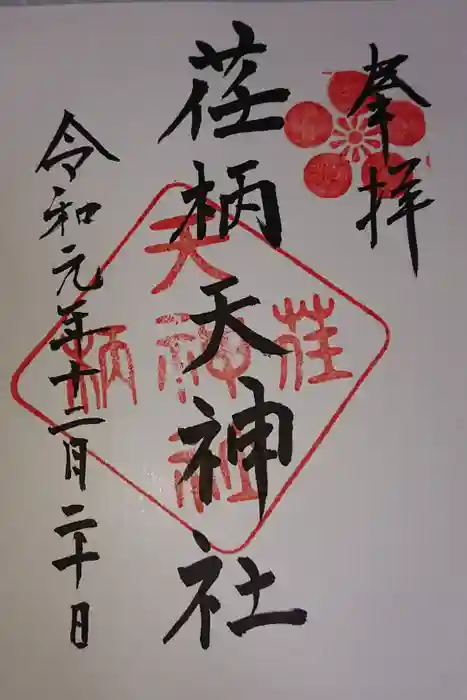 奉拝
荏柄天神社
荏柄天神社
令和元年十二月二十日